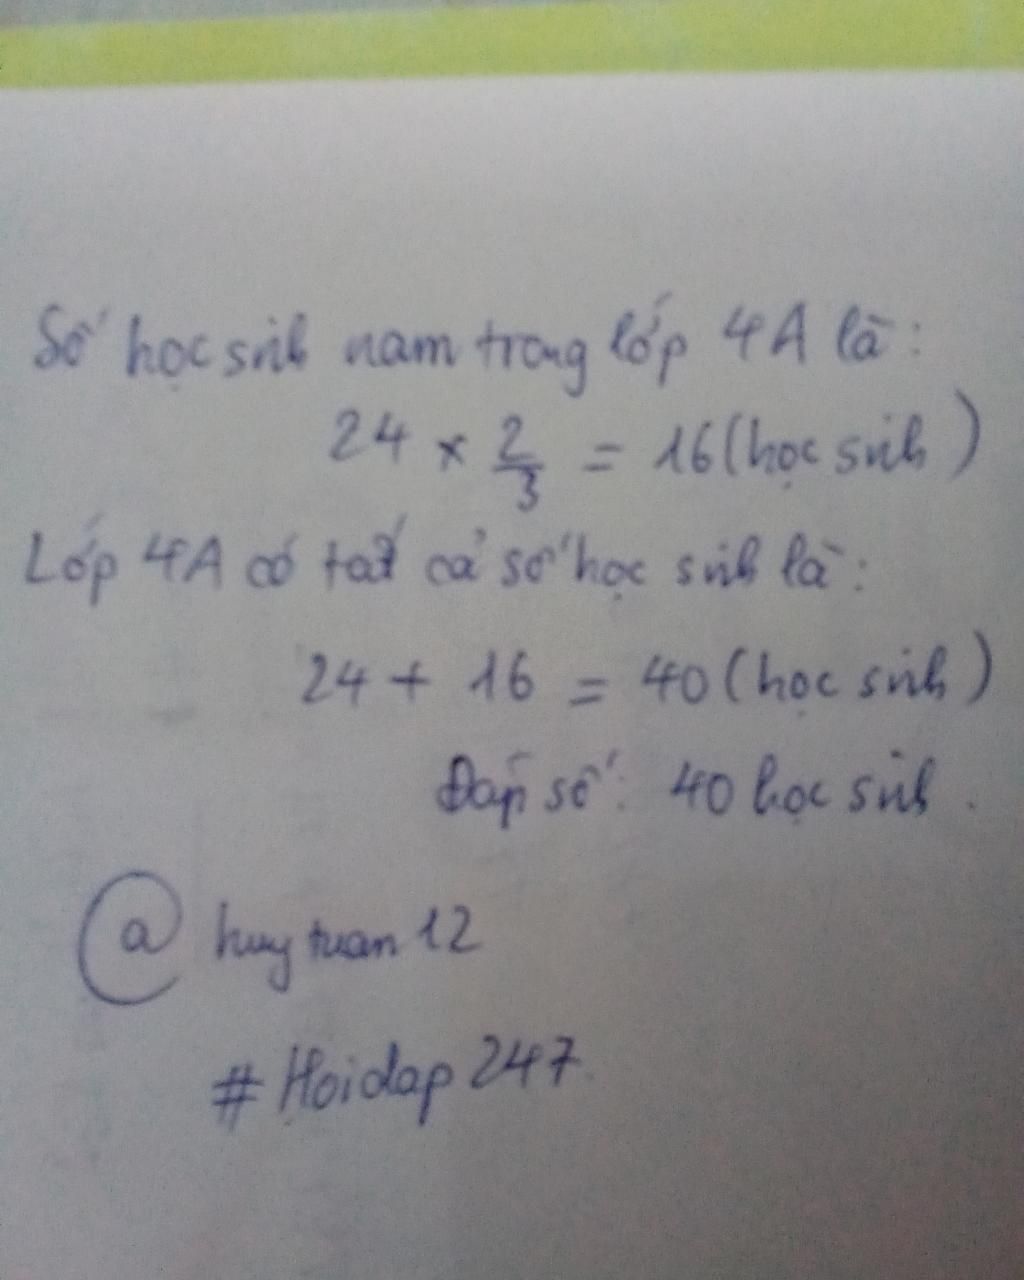 Số học sinh nam trong lớp 4A là:
24 × 2/3 = 16 (học sinh)
Lớp 4A có tất cả số học sinh là:
24 + 16 = 40 (học sinh)
Đáp số: 40 học sinh.
@ huytuan12
# Hoidap247